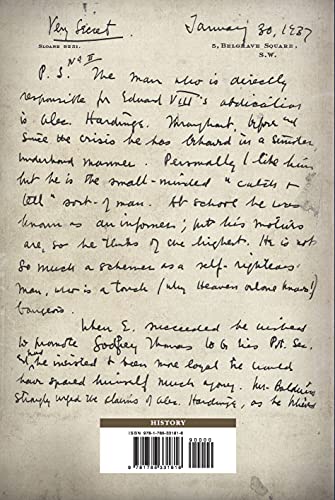 Very Secret.
January 30, 1937
SLOANE 5231.
5, BELGRAVE SQUARE,
S.W.
P.S. No II The man who is directly
responsible for Edward VIII's abdication
is Alec Hardinge. Throughout, before and
since the crisis he has behaved in a sinister
underhand manner. Personally I like him
but he is the small-minded "catch &
tell" sort of man. At school he was
known as an informer; but his motives
are, so he thinks of the highest. He is not
so much a schemer as a self-righteous
man, who is a touch (why Heaven alone knows!)
bourgeois.
When E. succeeded he wished
to promote Godfrey Thomas to be his Pvt. Sec.
and had he insisted & been more loyal he would
have spared himself much agony. Mr. Baldwin
strongly urged the claims of Alec Hardinge, as he
HISTORY
ISBN 978-1-786-33181-6
90000
9 781786 331816